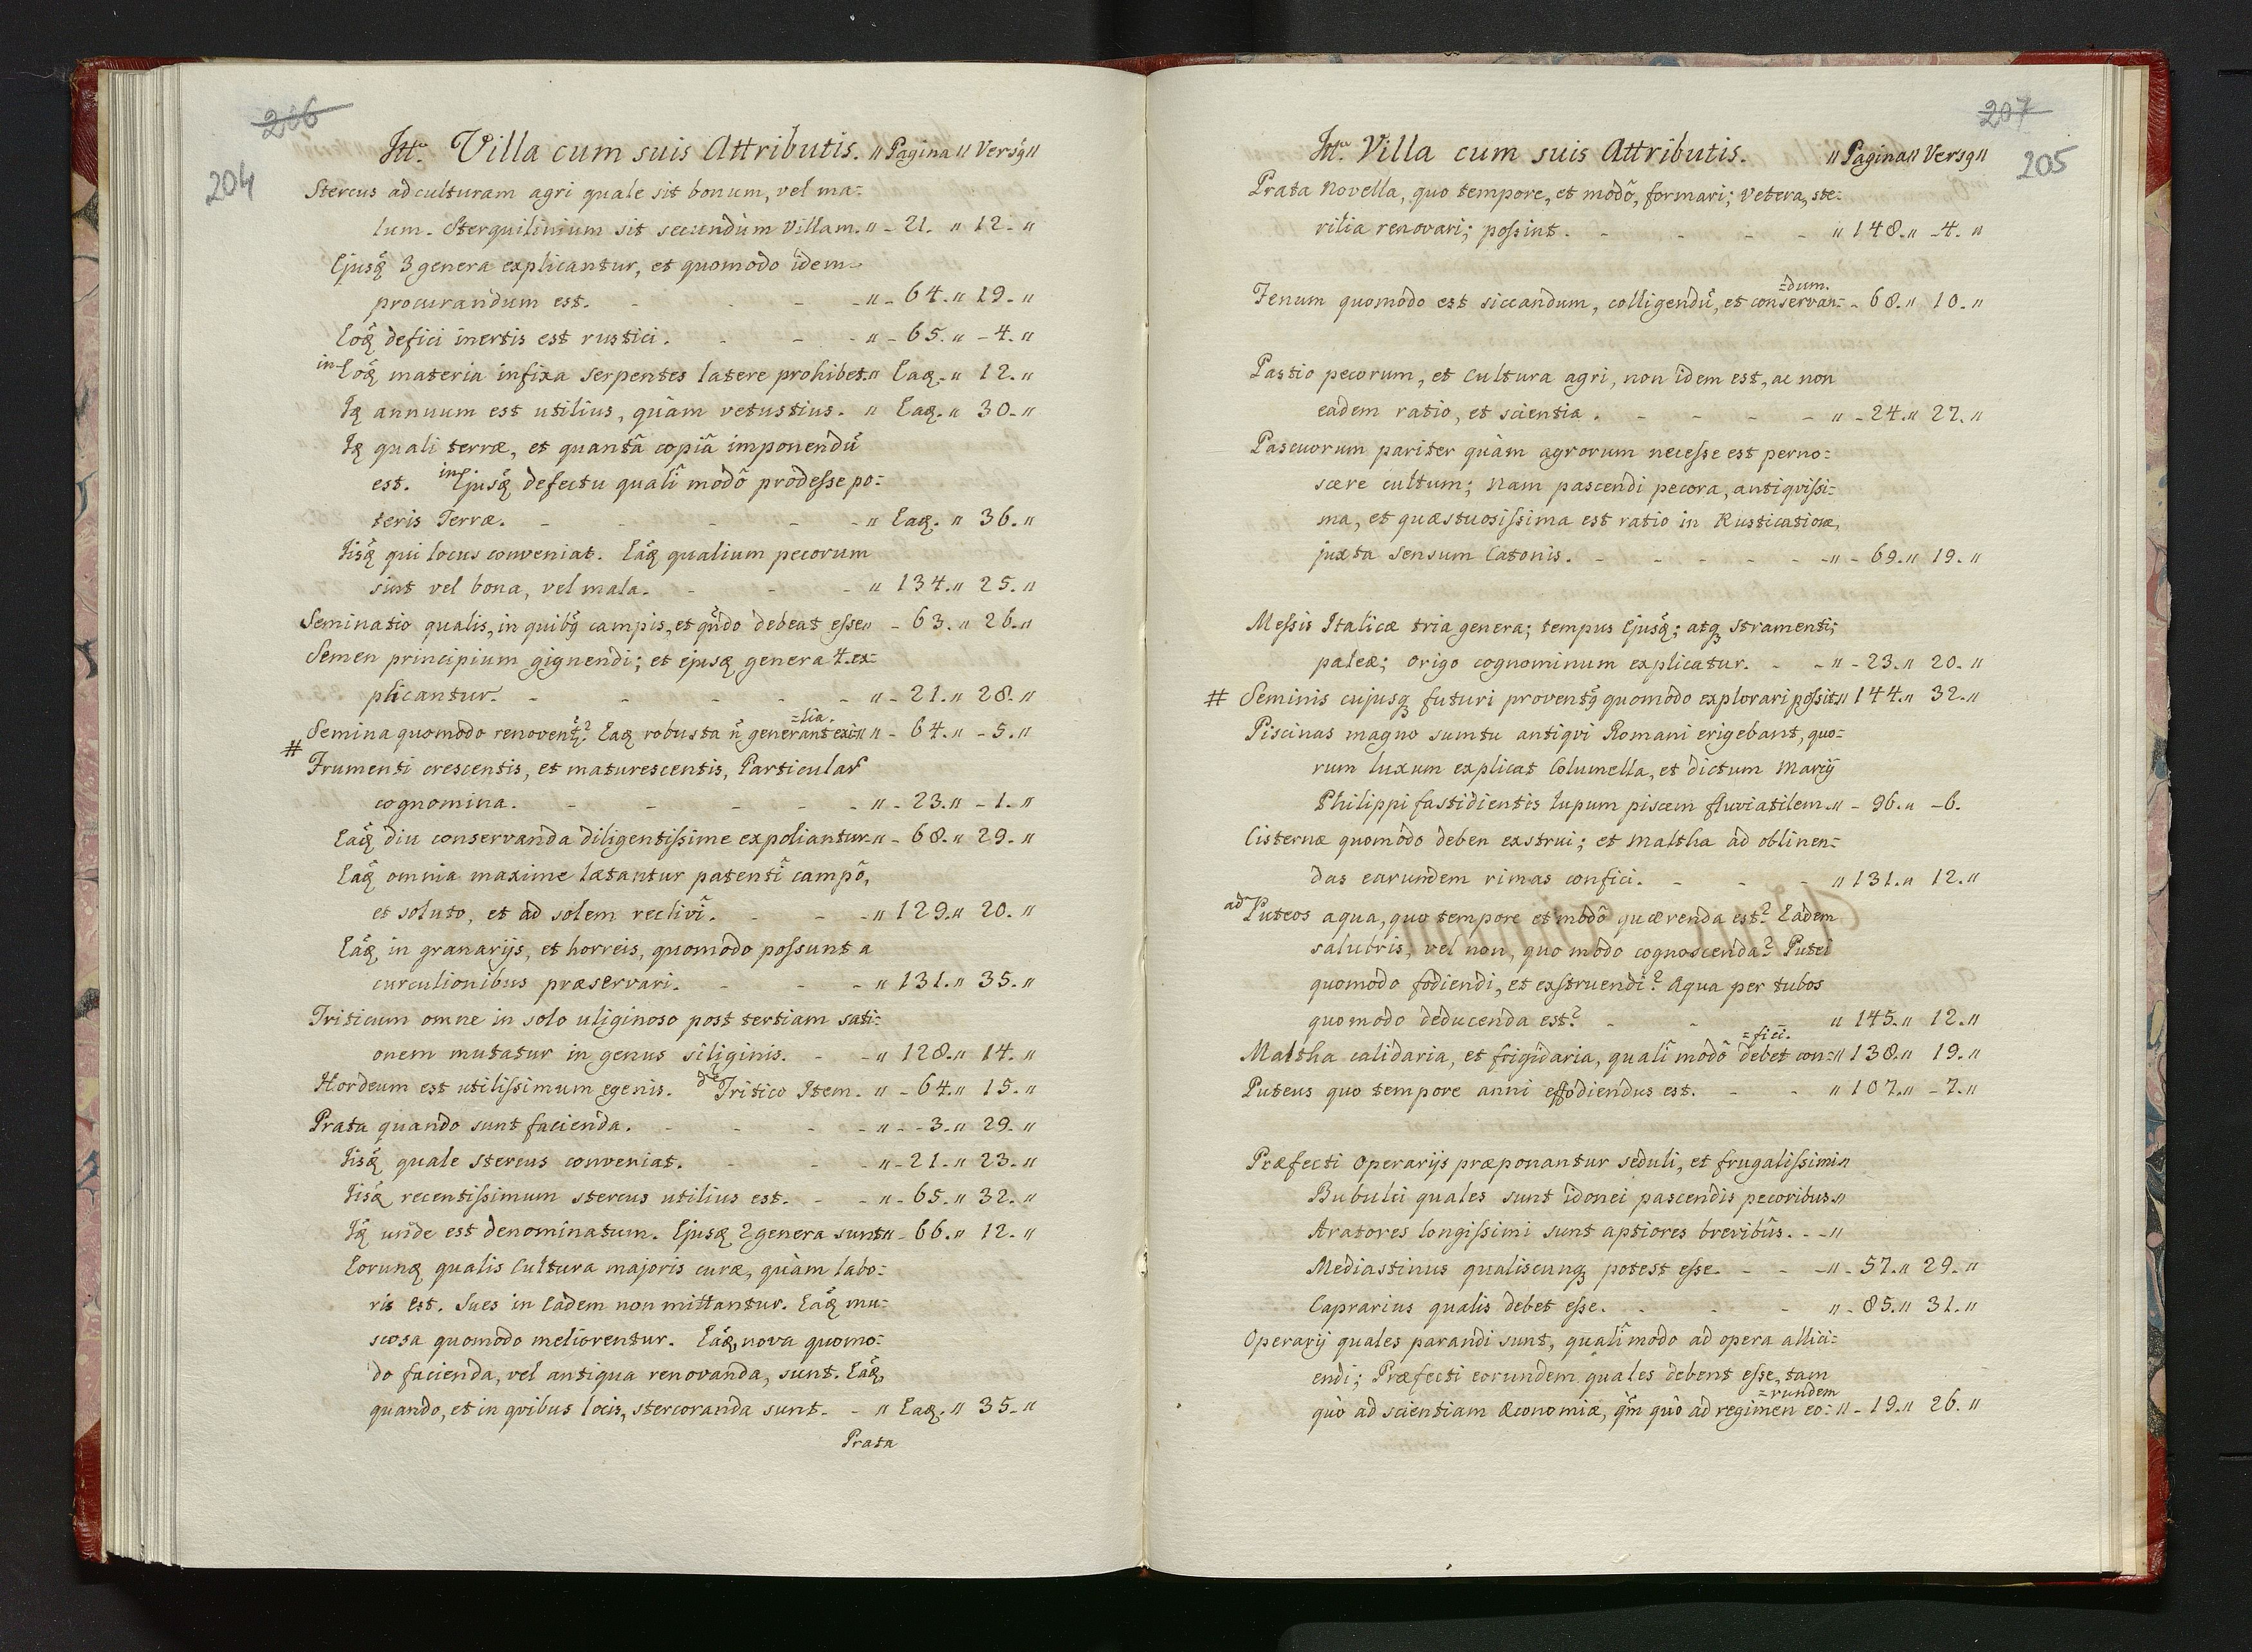 206
204
Itt. Villa cum suis Attributis. " Pagina " Versꝰ "
Stercus ad culturam agri quale sit bonum, vel ma:
lum. Sterquilinium sit secundùm Villam. " - 21. " 12. "
Ejusq̃ 3 genera explicantur, et quomodo idem
procurandum est. - - - - " - 64. " 19. "
Eoq̃ defici inertis est rustici. - - - " - 65. " - 4. "
in Eoq̃ materia infixa Serpentes latere prohibet. " Eaq. " 12. "
Iq annuum est utilius, quàm vetustius. " Eaq. " 30. "
Iq quali terræ, et quantâ copiâ imponendũ
est. in Ejusq̃ defectu quali modô prodeſse po:
teris Terræ. - - - - - " Eaq. " 36. "
Iisq̃ qui locus conveniat. Eaq̃ qualium pecorum
sint vel bona, vel mala. - - - " 134. " 25. "
Seminatio qualis, in quibꝰ campis, et qũdo debeat eſse " - 63. " 26. "
Semen principium gignendi; et ejusq genera 4. ex:
plicantur. - - - - - " - 21. " 28. "
=lia.
Semina quomodo renovent̃? Eaq robusta ñ generant exi: " - 64. " - 5. "
# Frumenti crescentis, et maturescentis, Particular
cognomina. - - - - - " - 23. " - 1. "
Eaq̃ diu conservanda diligentiſsime expoliantur. " - 68. " 29. "
Eaq̃ omnia maxime lætantur patenti campô,
et soluto, et ad solem reclivi. - - - " 129. " 20. "
Eaq̃, in granarijs, et horreis, quomodo poſsunt a
curculionibus præservari. - - - " 131. " 35. "
Triticum omne in solo uliginoso post tertiam sati:
onem mutatur in genus siliginis. - - " 128. " 14. "
Hordeum est utiliſsimum egenis. de Tritico Item. " - 64. " 15. "
Prata quando sunt facienda. - - - - " - - 3. " 29. "
Iisq̃ quale stercus conveniat. - - - " - 21. " 23. "
Iisq̃ recentiſsimum stercus utilius est. - - " - 65. " 32. "
Iq̃ unde est denominatum. Ejusq 2 genera sunt " - 66. " 12. "
Eorunq qualis Cultura majoris curæ, quàm labo:
ris est. Sues in Eadem non mittantur. Eaq̃ mu:
scosa quomodo meliorentur. Eaq̃, nova quomo:
do facienda, vel antiqua renovanda, sunt. Eaq̃,
quando, et in qvibus locis, stercoranda sunt. - " Eaq. " 35. "
Prata
207
205
Itt. Villa cum suis Attributis. " Pagina " Versꝰ "
Prata Novella, quo tempore, et modô, formari; Vetera, ste:
rilia renovari; poſsint. - - - - " 148. " - 4. "
=dum.
Fenum quomodo est siccandum, colligendũ, et conservan: - 68. " 10. "
Pastio pecorum, et Cultura agri, non idem est, ac non
eadem ratio, et scientia. - - - - " - 24. " 27. "
Pascuorum pariter quàm agrorum neceſse est perno:
scere cultum; Nam pascendi pecora, antiqviſsi:
ma, et quæstuosiſsima est ratio in Rusticatione,
juxta Sensum Catonis. - - - - - " - 69. " 19. "
Meſsis Italicæ tria genera; tempus Ejusq̃; atq3 stramenti;
paleæ; origo cognominum explicatur. - - " - 23. " 20. "
# Seminis cujusq3 futuri proventꝰ quomodo explorari poſsit " 144. " 32. "
Piscinas magno sumtu antiqvi Romani erigebant, quo:
rum luxum explicat Columella, et dictum Marcij
Philippi fastidientis lupum piscem fluviatilem. " - 96. " - 6.
Cisternæ quomodo deben exstrui; et Maltha ad oblinen:
das earundem rimas confici. - - - " 131. " 12. "
ad Puteos aqua, quo tempore et modô quærenda est? Eadem
salubris, vel non, quo modo cognoscenda? Putei
quomodo fodiendi, et exſtruendi? Aqua per tubos
quomodo deducenda est? - - " 145. " 12. "
=fici.
Maltha calidaria, et frigidaria, quali modô debet con: " 138. " 19. "
Puteus quo tempore anni effodiendus est. - - " 107. " - 7. "
Præfecti Operarijs præponantur seduli, et frugaliſsimi "
Bubulci quales sunt idonei pascendis pecoribus. "
Aratores longiſsimi sunt aptiores brevibûs. - - "
Mediastinus qualiscunq3 potest eſse. - - - " - 57. " 29. "
Caprarius qualis debet eſse. - - - " - 85. " 31. "
Operarij quales parandi sunt, quali modo ad opera allici:
endi; Præfecti eorundem quales debent eſse, tam
=rundem
quò ad scientiam Œconomiæ, q̃m quò ad regimen eo: " - 19. " 26. "